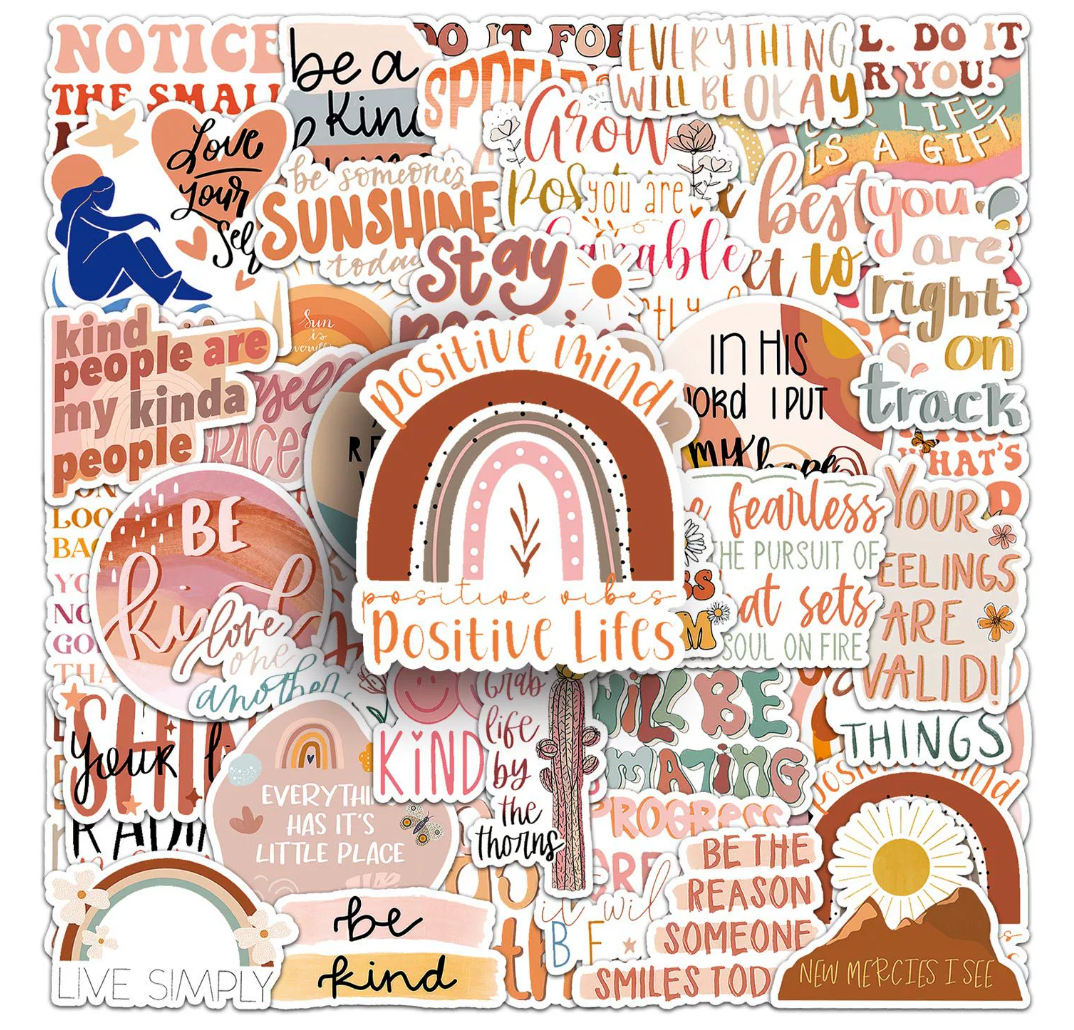 NOTICE
THE SMALL
be a
kind
DO IT FOR
SPREAD
EVERYTHING
WILL BE OKAY
L. DO IT
R YOU.
LIFE
IS A GIFT
Love
your
self
be someone's
SUNSHINE
today
Grow
you are
best
et to
you
are
right
on
track
stay
sun
is
kind
people are
my kinda
people
IN HIS
WORD I PUT
my hope
positive mind
positive vibes
Positive Lifes
WHAT'S
BE
kind
love
one
another
fearless
THE PURSUIT OF
at sets
SOUL ON FIRE
YOUR
FEELINGS
ARE
VALID!
LOO
BAC
YO
NO
GO
THA
SHIN
your
RADI
EVERYTHI
HAS IT'S
LITTLE PLACE
KIND
Grab
life
by
the
thorns
WILL BE
AMAZING
PROGRESS
THINGS
positive mind
BE THE
REASON
SOMEONE
SMILES TOD
it wil
BE
LIVE SIMPLY
be
kind
NEW MERCIES I SEE